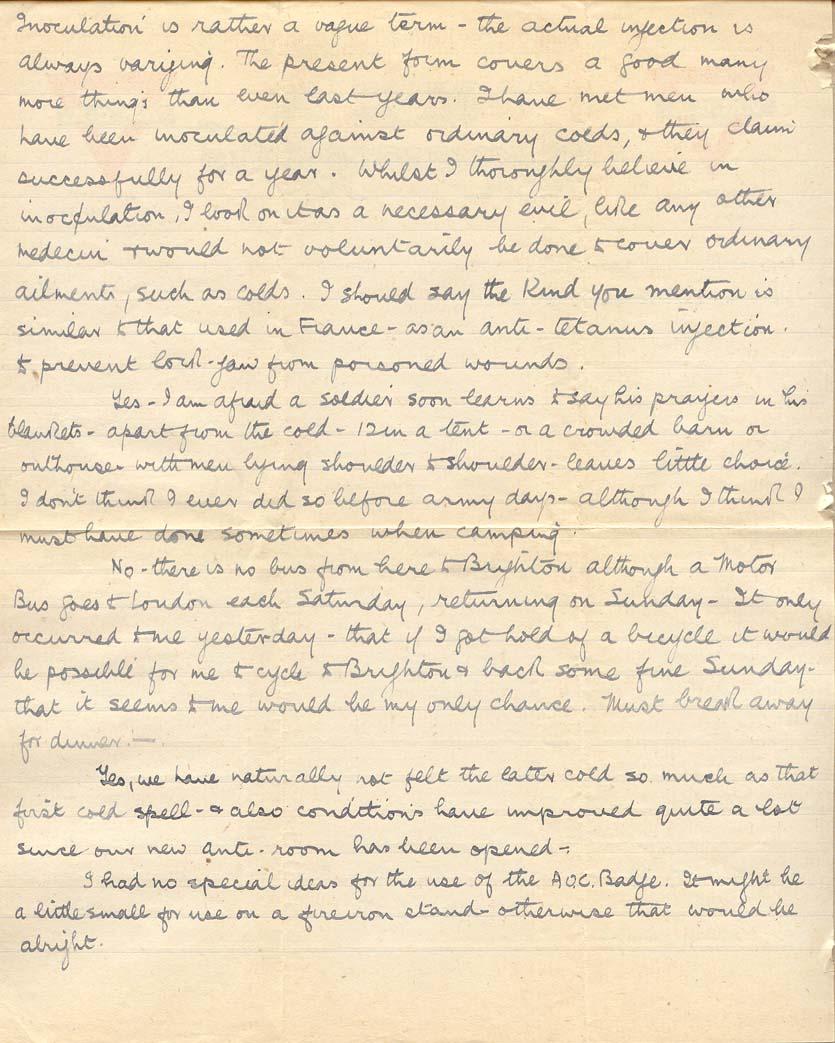 Inoculation' is rather a vague term - the actual injection is
always varying. The present form covers a good many
more things than even last years. I have met men who
have been inoculated against ordinary colds, & they claim
successfully for a year. Whilst I thoroughly believe in
inoculation, I look on it as a necessary evil, like any other
medecin & would not voluntarily be done to cover ordinary
ailments, such as colds. I should say the kind you mention is
similar to that used in France - as an anti-tetanus injection.
to prevent lock-jaw from poisoned wounds.
Yes - I am afraid a soldier soon learns to say his prayers in his
blankets - apart from the cold - 12 in a tent - or a crowded barn or
outhouse with men lying shoulder to shoulder - leaves little choice.
I don't think I ever did so before army days - although I think I
must have done sometimes when camping.
No - there is no bus from here to Brighton although a Motor
Bus goes to London each Saturday, returning on Sunday - It only
occurred to me yesterday - that if I got hold of a bicycle it would
be possible for me to cycle to Brighton & back some fine Sunday -
that it seems to me would be my only chance. Must break away
for dinner. -
Yes, we have naturally not felt the later cold so much as that
first cold spell - & also conditions have improved quite a lot
since our new ante-room has been opened -
I had no special ideas for the use of the A.O.C. Badge. It might be
a little small for use on a fireiron stand - otherwise that would be
alright.